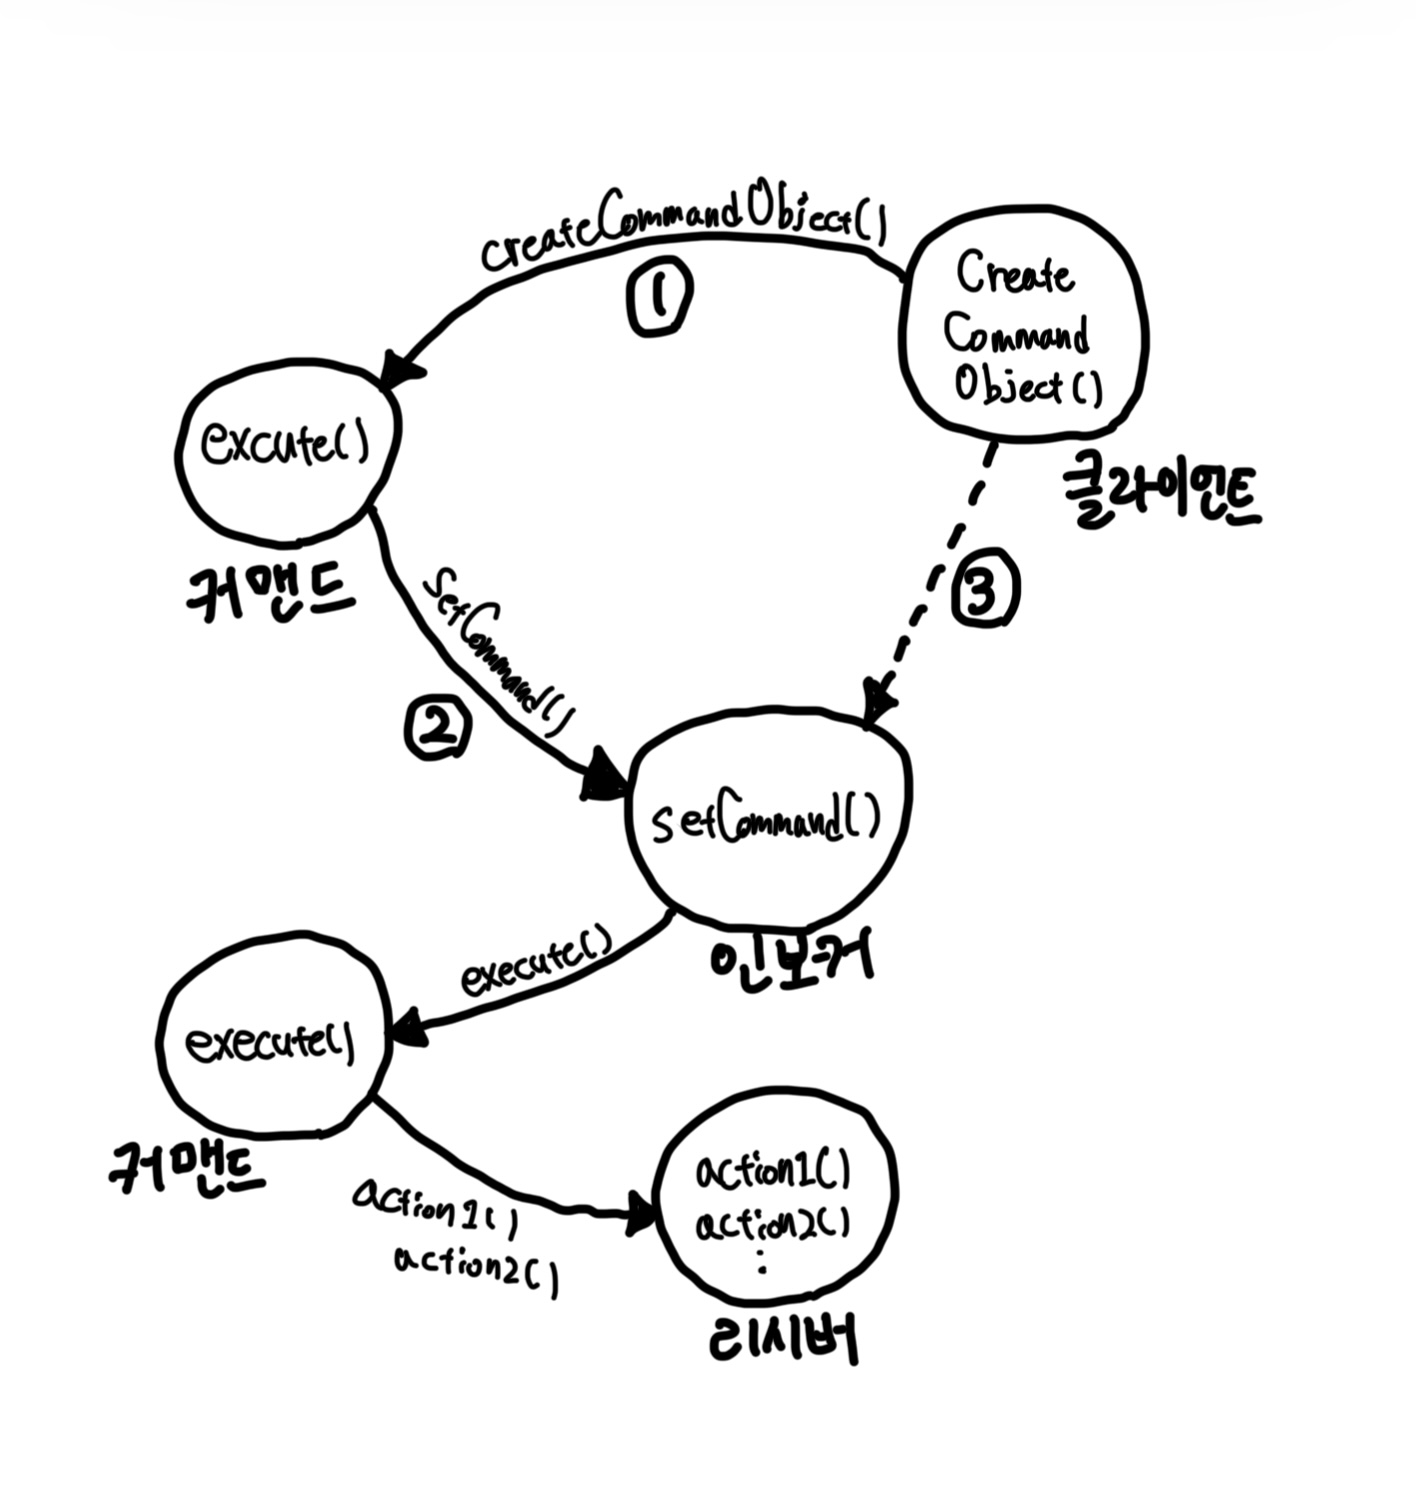 createCommandObject()
1
Create
Command
Object()
클라이언트
excute()
커맨드
setCommand()
2
3
setCommand()
인보커
execute()
execute()
커맨드
action1()
action2()
action1()
action2()
:
리시버